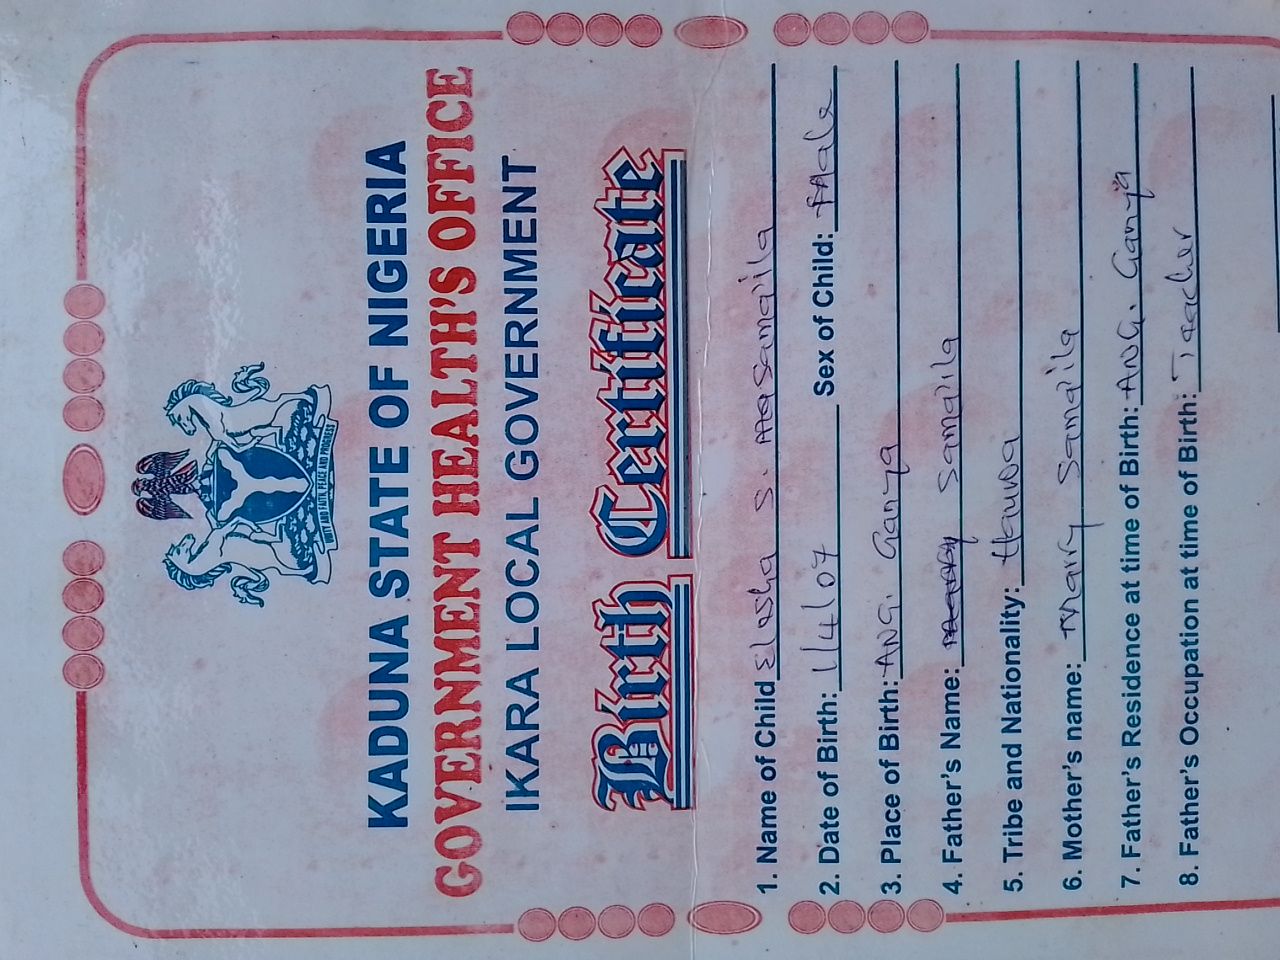 UNITY AND FAITH, PEACE AND PROGRESS
KADUNA STATE OF NIGERIA
GOVERNMENT HEALTH'S OFFICE
IKARA LOCAL GOVERNMENT
Birth Certificate
1. Name of Child Elisha S. Samaila
2. Date of Birth: 1/4/07 Sex of Child: Male
3. Place of Birth: ANG. Ganya
4. Father's Name: Samaila
5. Tribe and Nationality: Hausa
6. Mother's name: Mary Samaila
7. Father's Residence at time of Birth: ANG. Ganya
8. Father's Occupation at time of Birth: Teacher